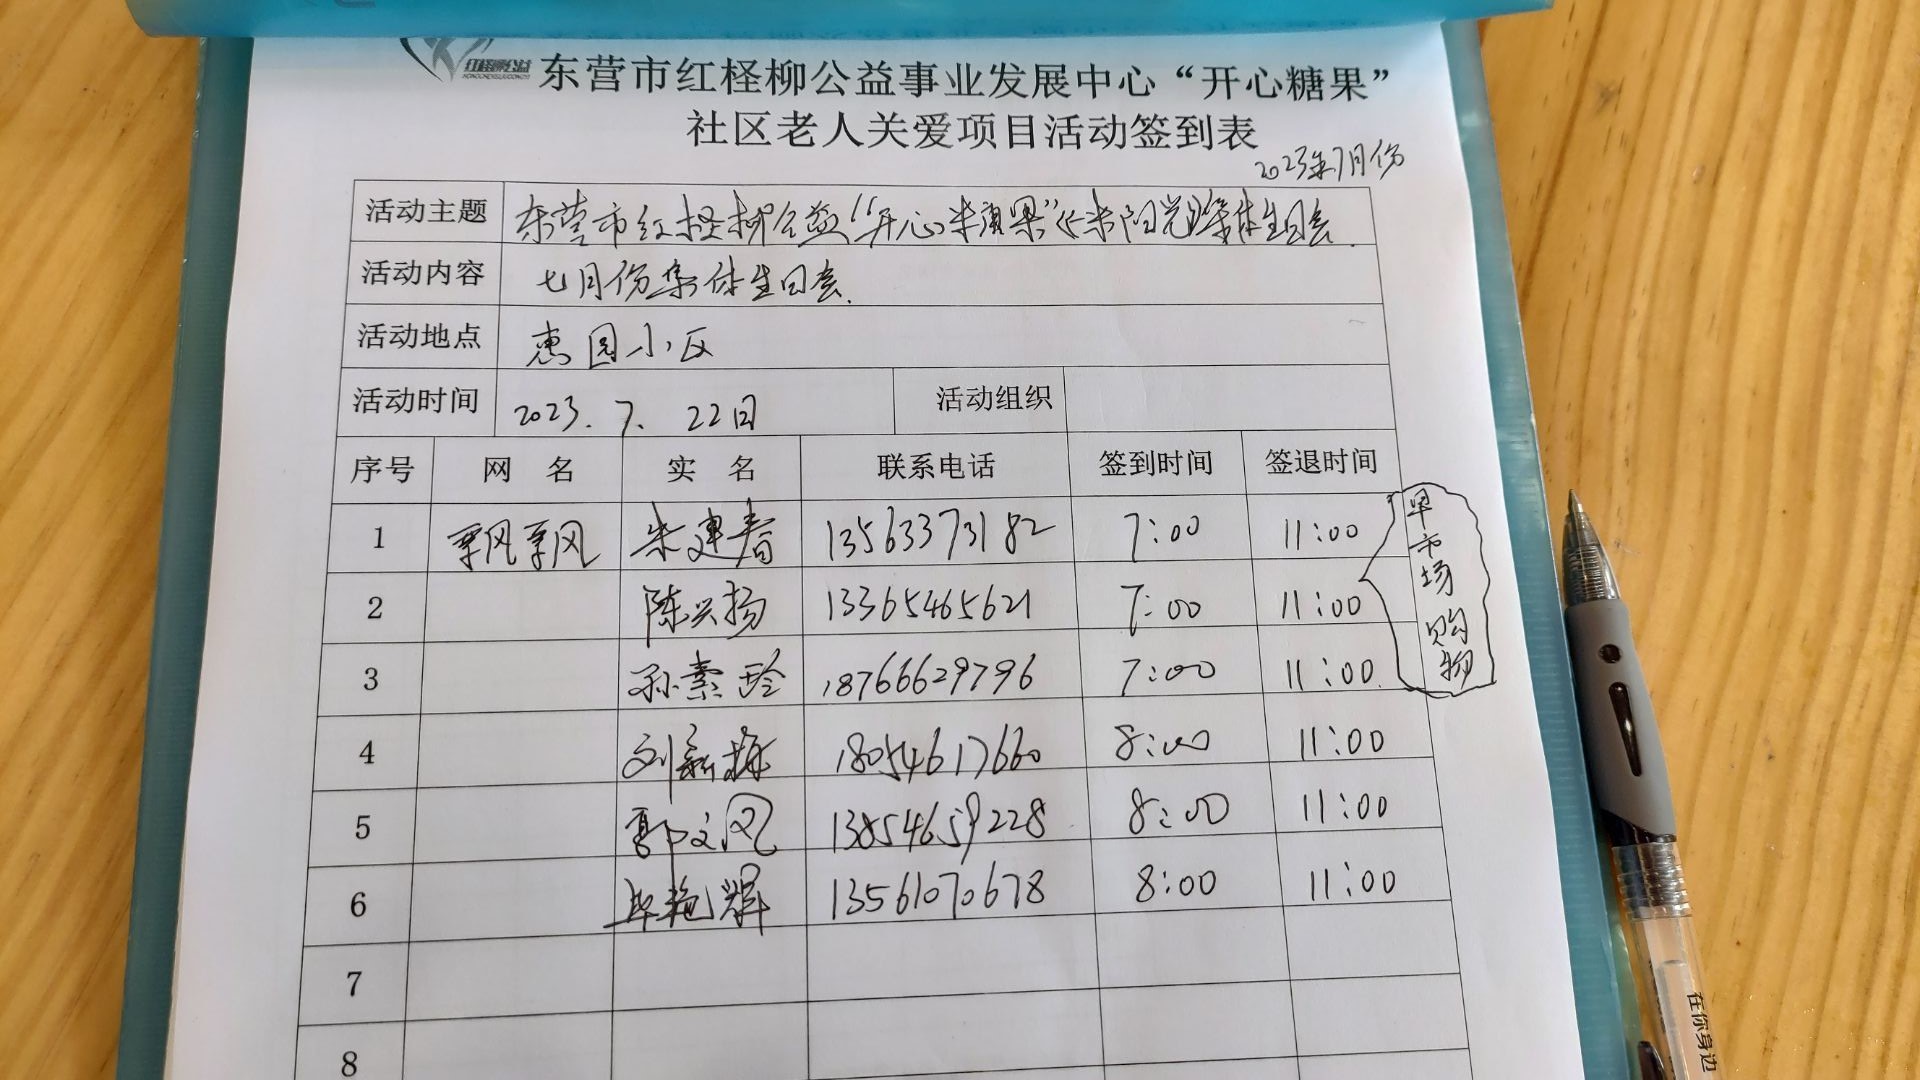 红柽柳公益
东营市红柽柳公益事业发展中心“开心糖果”
社区老人关爱项目活动签到表
2023年7月份
活动主题 东营市红柽柳公益“开心糖果”《朱阳光》集体生日会.
活动内容 七月份集体生日会.
活动地点 惠园小区
活动时间 2023.7.22日 活动组织
序号 网 名 实 名 联系电话 签到时间 签退时间
1 飘飘 朱建春 13563373182 7:00 11:00
2 陈兴扬 13365465621 7:00 11:00
3 孙素玲 18766629796 7:00 11:00
4 刘新栋 18054617660 8:00 11:00
5 郭文风 13854659228 8:00 11:00
6 毕艳辉 13561070678 8:00 11:00
7
8
早市场购物
在你身边